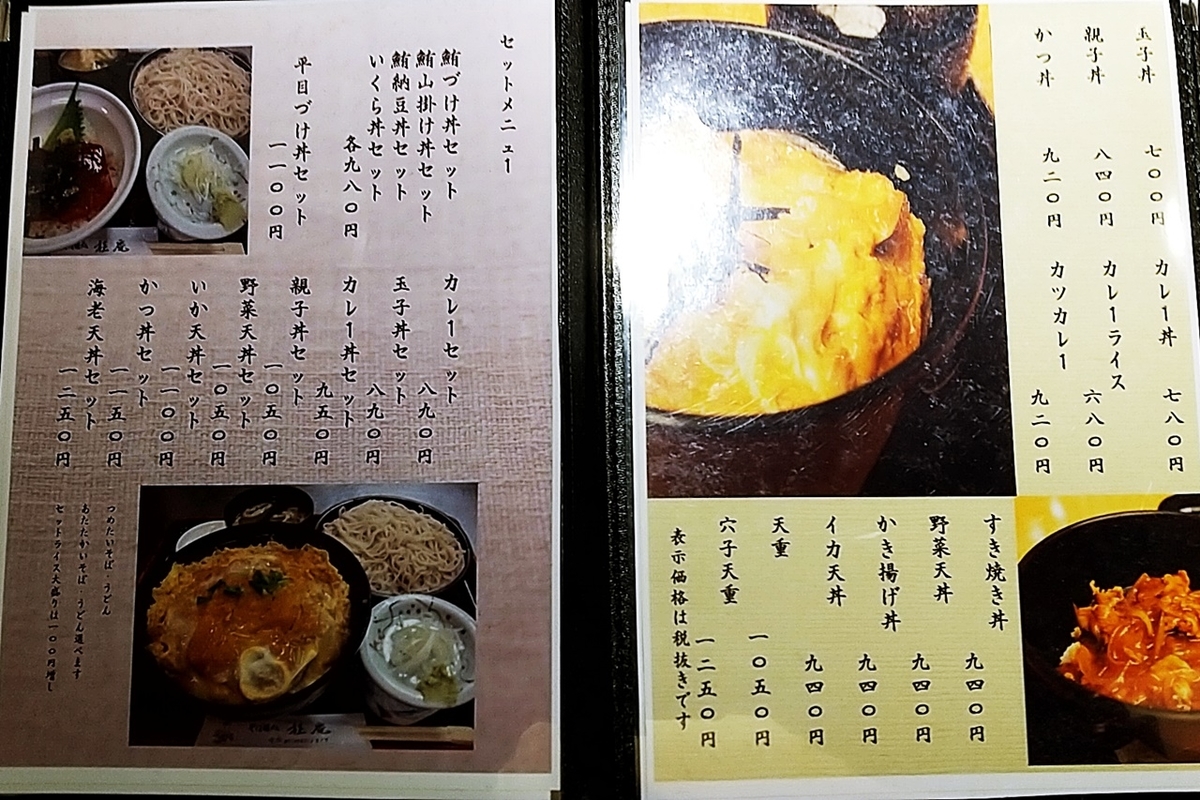 セットメニュー
鮪づけ丼セット
鮪山掛け丼セット
鮪納豆丼セット
いくら丼セット
各九八〇円
平目づけ丼セット
一一〇〇円
カレーセット
八九〇円
玉子丼セット
八九〇円
カレー丼セット
九五〇円
親子丼セット
一〇五〇円
野菜天丼セット
一〇五〇円
いか天丼セット
一一〇〇円
かつ丼セット
一一五〇円
海老天丼セット
一二五〇円
つめたいそば・うどん
あたたかいそば・うどん選べます
セットライス大盛りは一〇〇円増し
桂庵
桂庵
玉子丼 七〇〇円
親子丼 八四〇円
かつ丼 九二〇円
カレー丼 七八〇円
カレーライス 六八〇円
カツカレー 九二〇円
すき焼き丼 九四〇円
野菜天丼 九四〇円
かき揚げ丼 九四〇円
イカ天丼 九四〇円
天重 一〇五〇円
穴子天重 一二五〇円
表示価格は税抜きです